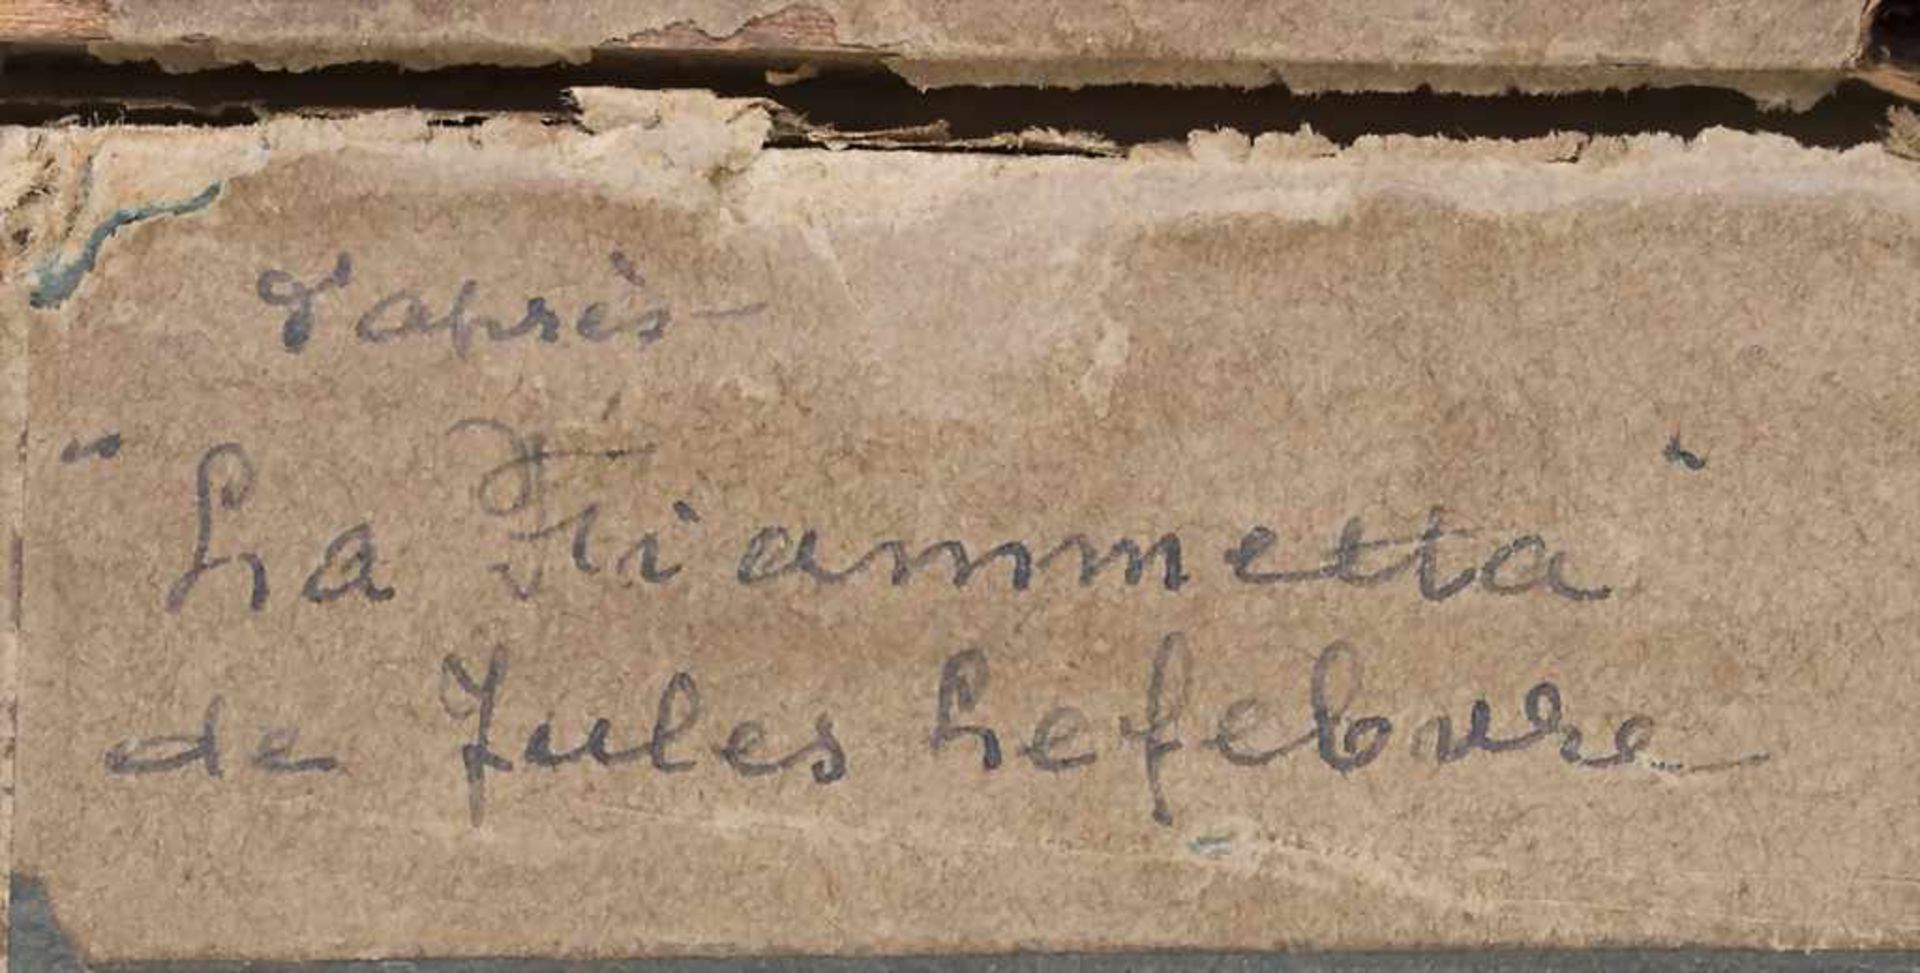 d'après
"La Fiammetta"
de Jules Lefebvre